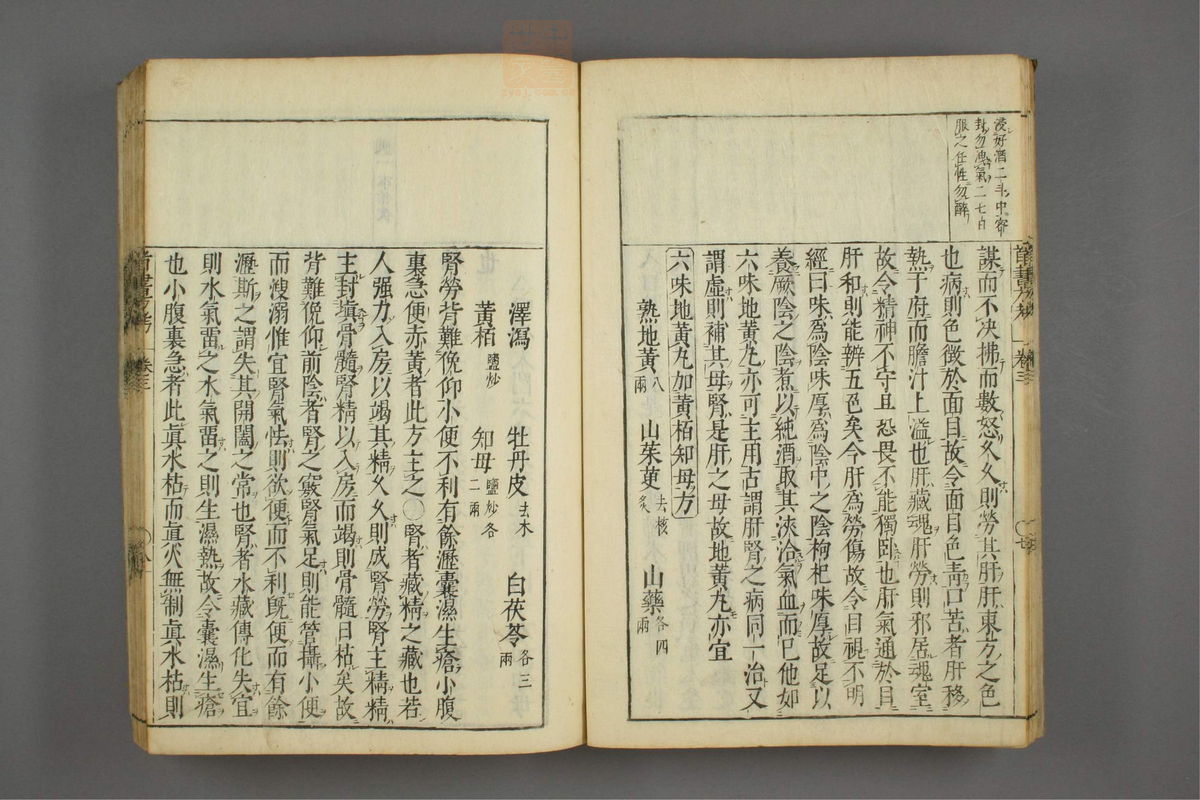 浸好酒二斗中密
封勿洩氣二七日
服之任性勿醉
謀而不决拂而數怒久久則勞其肝肝東方之色
也病則色徴於面目故令面目色靑口苦者肝移
熱于府而膽汁上溢也肝藏魂肝勞則邪居魂室
故令精神不守且恐畏不能獨卧也肝氣通於目
肝和則能辨五色矣今肝爲勞傷故令目視不明
經曰味爲陰味厚爲陰中之陰枸杞味厚故足以
養厥陰之陰煮以純酒取其浹洽氣血而巳他如
六味地黄丸亦可主用古謂肝腎之病同一治又
謂虚則補其母腎是肝之母故地黄丸亦宜
六味地黄丸加黄栢知母方
熟地黄八兩 山茱萸去核炙 山藥各四兩
卷三
七
澤瀉 牡丹皮去木 白茯苓各三兩
黄栢鹽炒 知母二兩鹽炒各
腎勞背難俛仰小便不利有餘瀝囊濕生瘡小腹
裏急便赤黄者此方主之○腎者藏精之藏也若
人强力入房以竭其精久久則成腎勞腎主精精
主封塡骨髓腎精以入房而竭則骨髓日枯矣故
背難俛仰前陰者腎之竅腎氣足則能管攝小便
而溲溺惟宜腎氣怯則欲便而不利旣便而有餘
瀝斯之謂失其開闔之常也腎者水藏傳化失宜
則水氣雷之水氣雷之則生濕熱故令囊濕生瘡
也小腹裏急者此眞水枯而眞火無制眞水枯則
卷三
八